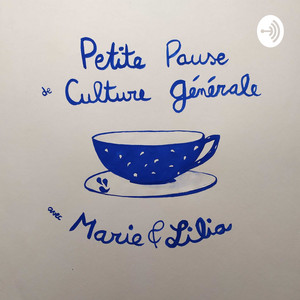 Petite Pause
de Culture générale
avec
Marie & Lilia